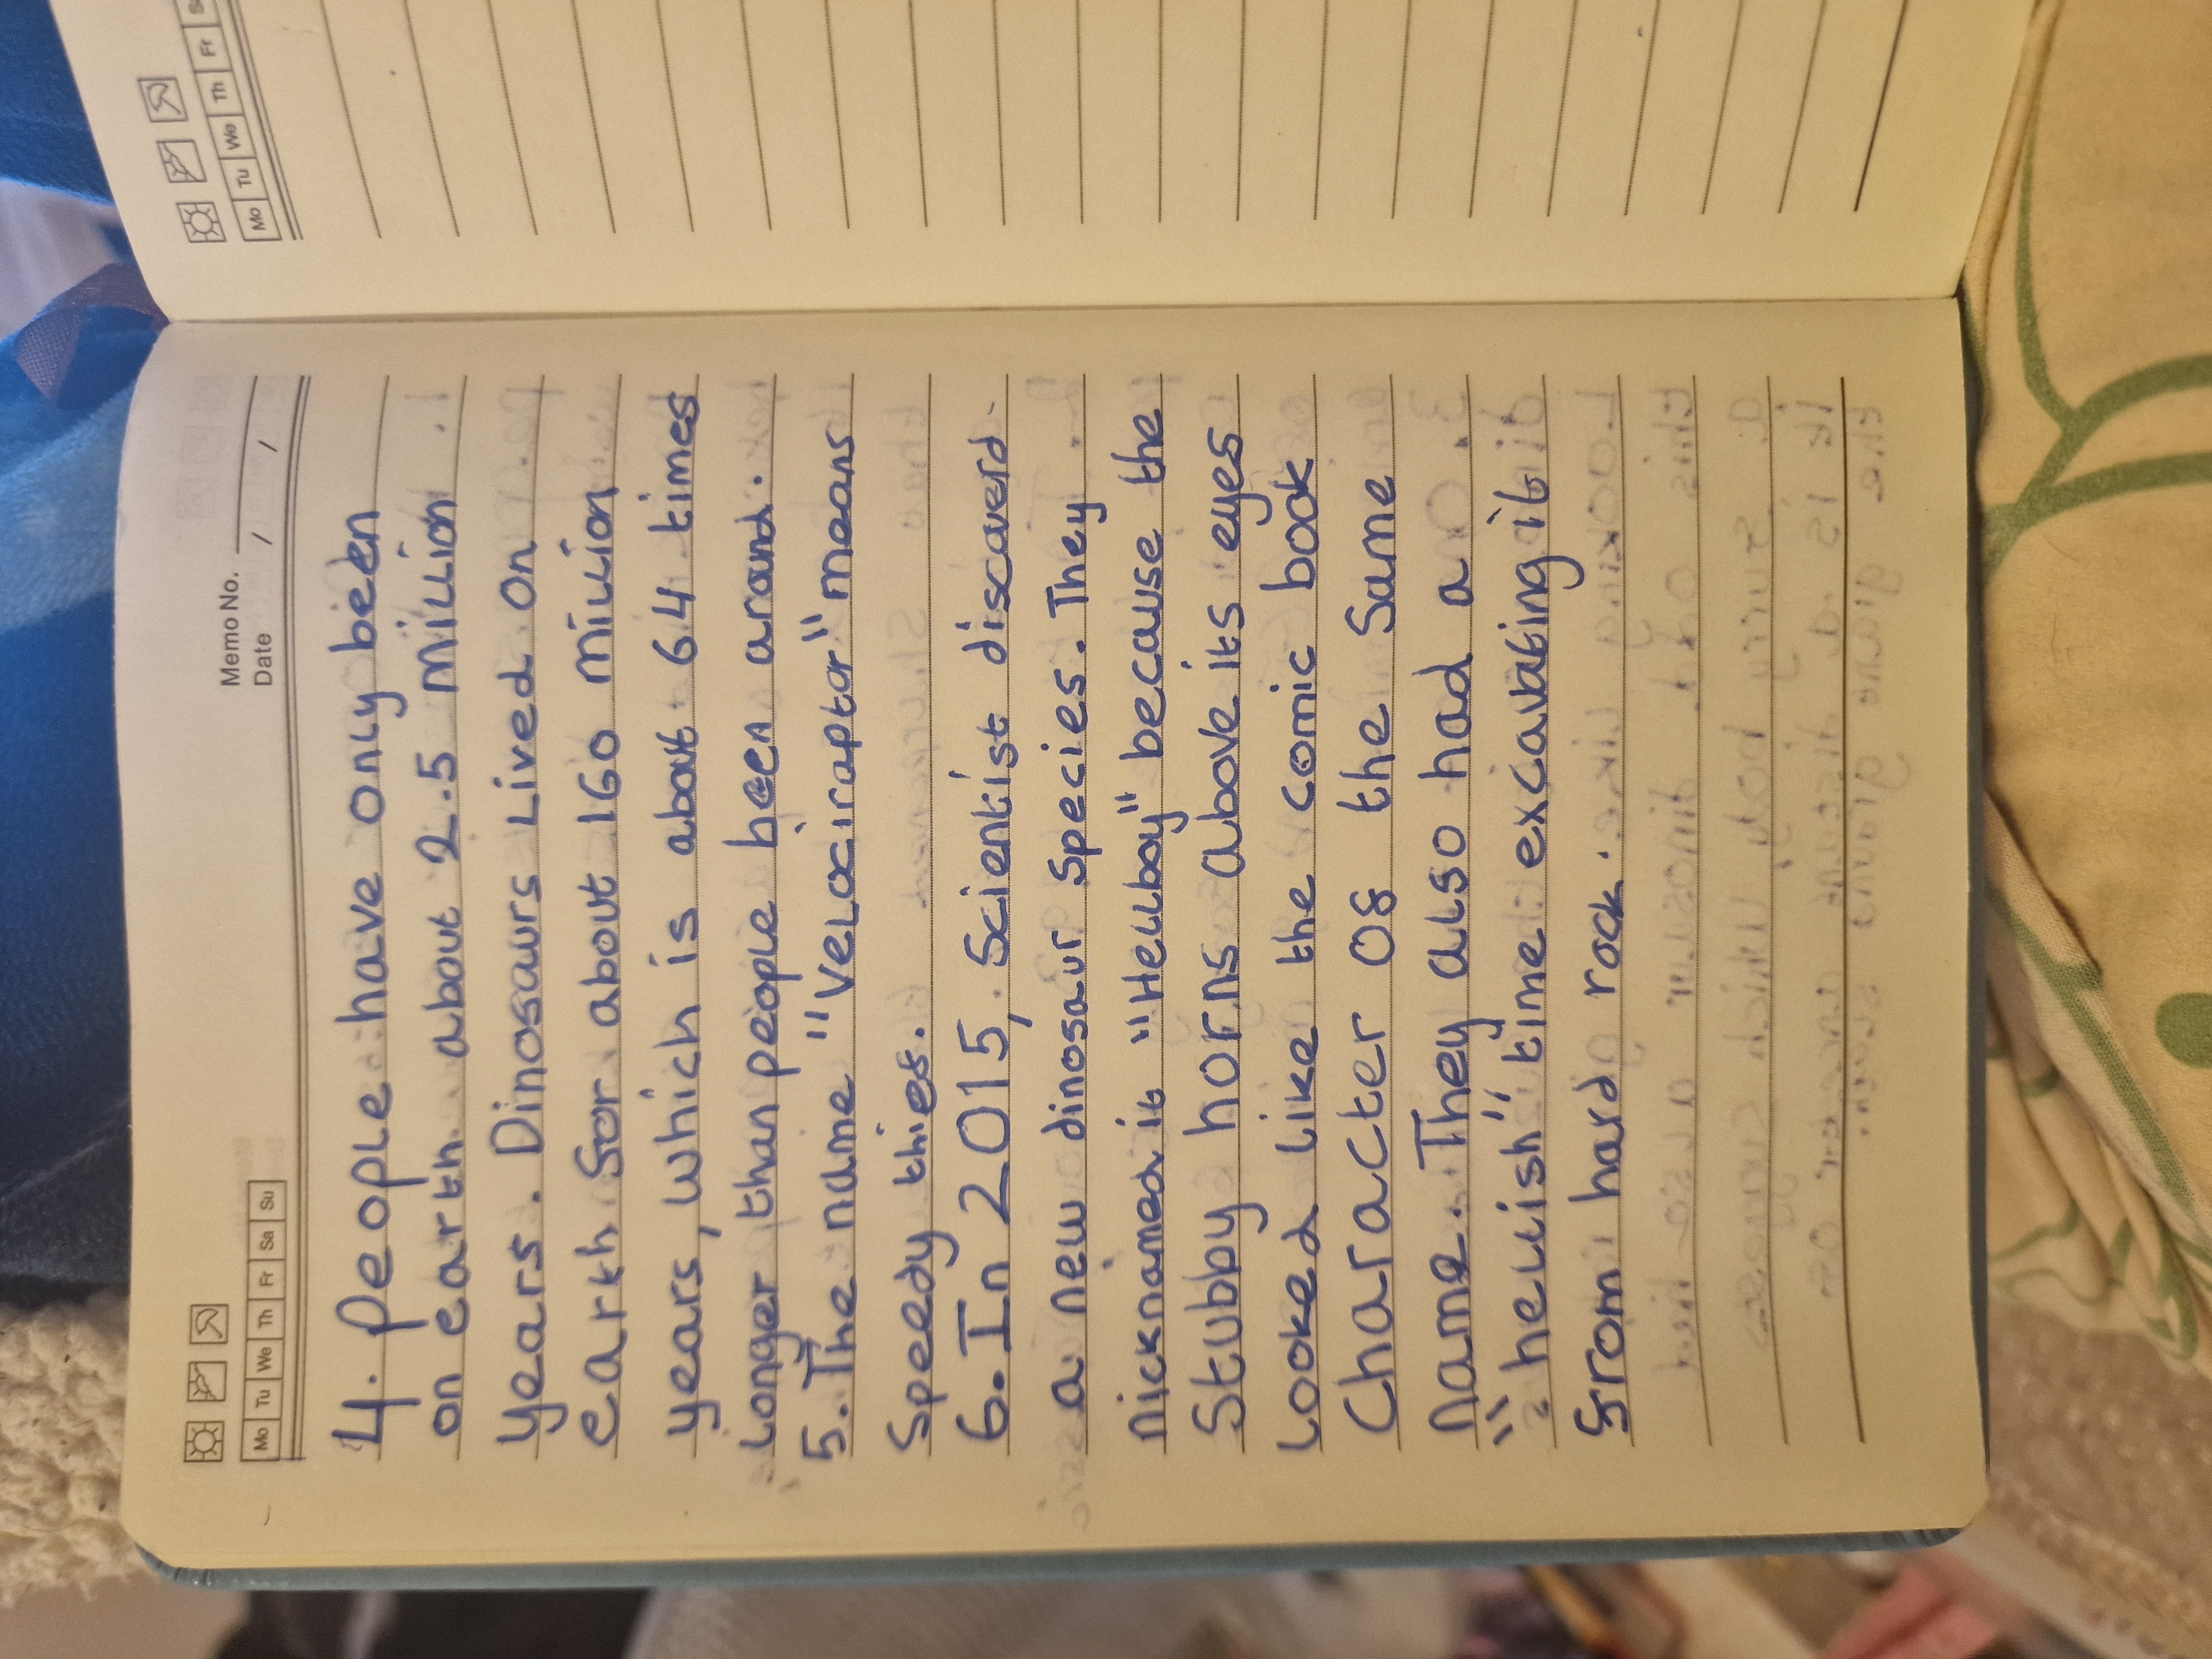 Memo No.
Date / /
Mo Tu We Th Fr Sa Su
4. People have only been
on earth about 2.5 million
years. Dinosaurs Lived on
earth for about 160 million
years, which is about 64 times
Longer than people been around.
5. The name "Velociraptor" means
Speedy thief.
6. In 2015, Scientist discoverd
a new dinosaur species. They
nicknamed it "Hellboy" because the
Stubby horns above its eyes
Looked Like the comic book
Character of the Same
name. They also had a
"hellish" time excavating it
from hard rock.
Mo Tu We Th Fr